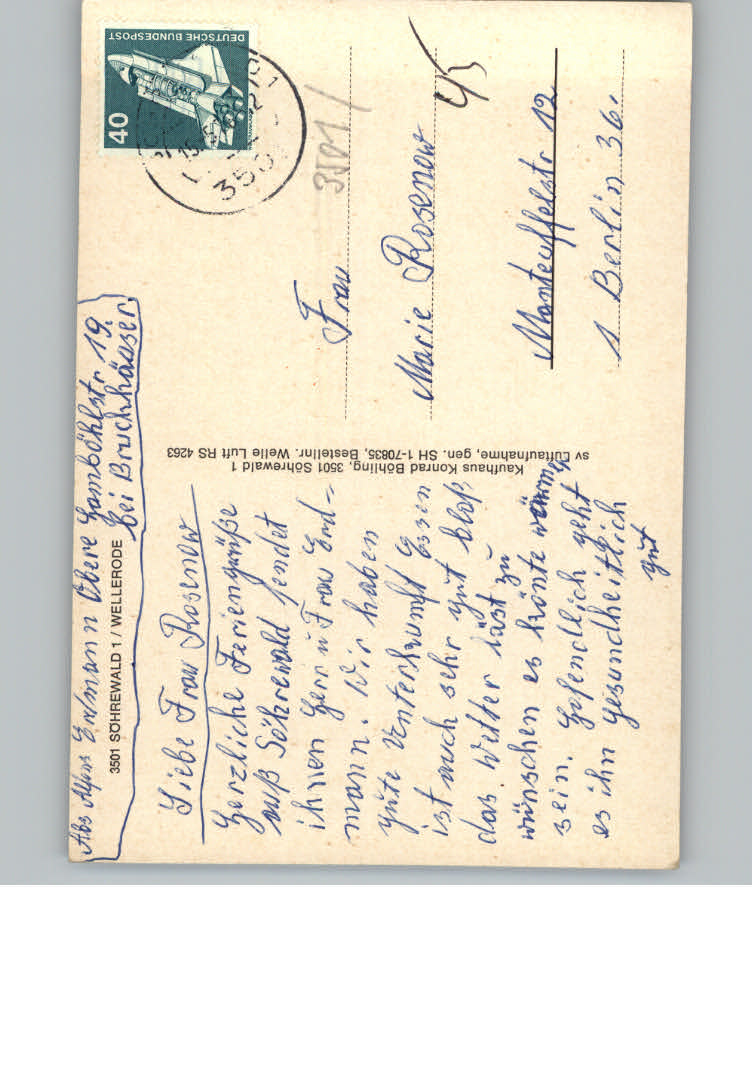 Abs Alfons Erdmann Obere Gamböhlstr 19.
bei Bruchhäuser.
3501 SÖHREWALD 1 / WELLERODE
Liebe Frau Rosenow
Herzliche Feriengrüße
auß Söhrewald sendet
ihnen Herr u Frau Erd-
mann. Wir haben
gute Unterkunft Essen
ist auch sehr gut bloß
das Wetter läst zu
wünschen es könte wärmer
sein. Hofendlich geht
es ihn gesundheitlich
gut
Kaufhaus Konrad Böhling, 3501 Söhrewald 1
sv Luftaufnahme, gen. SH 1-70835, Bestellnr. Welle Luft RS 4263
DEUTSCHE BUNDESPOST
40
350
3501/
45
Frau
Marie Rosenow
Manteuffelstr 12
1 Berlin 36.